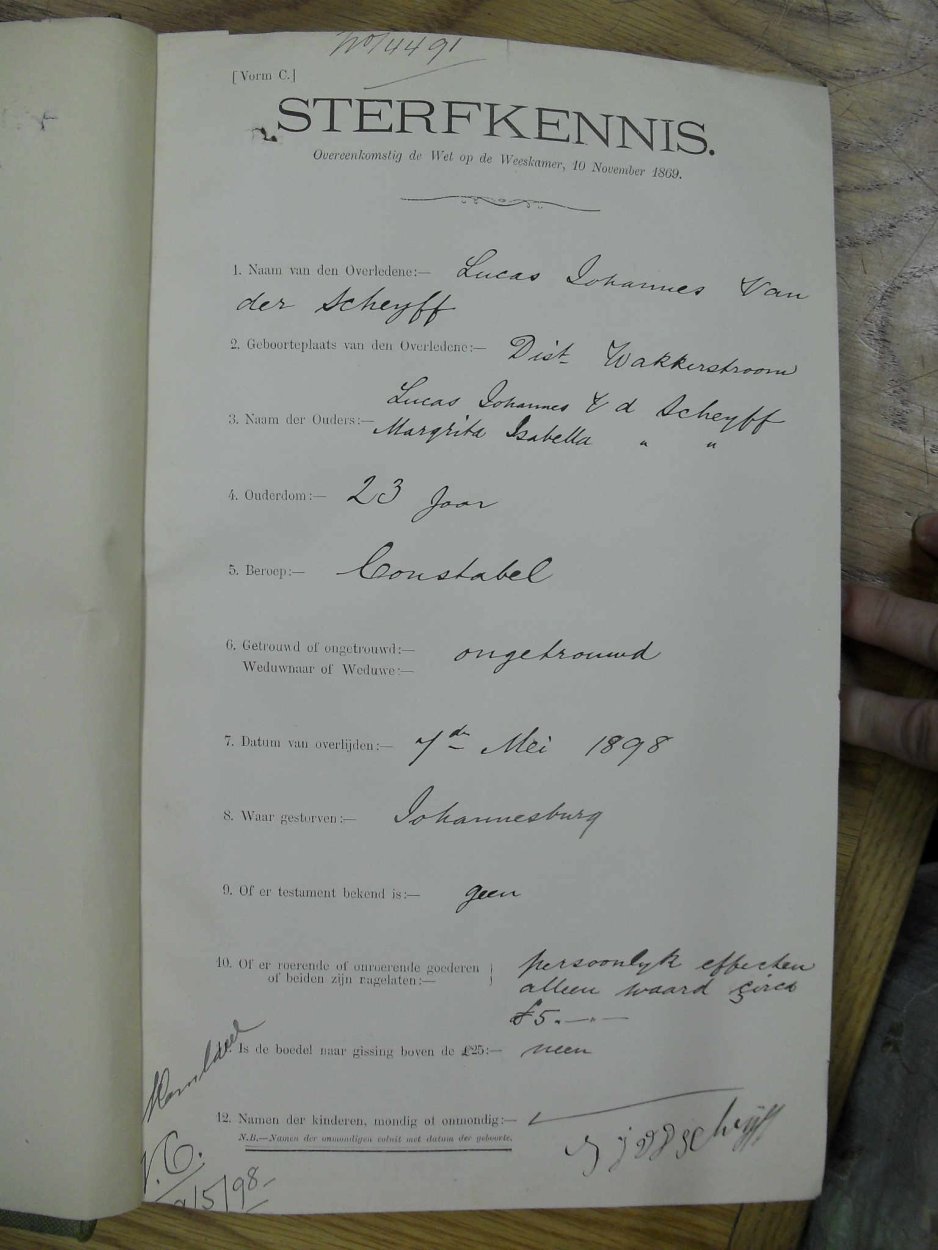 No 14491
[Vorm C.]
STERFKENNIS.
Overeenkomstig de Wet op de Weeskamer, 10 November 1869.
1. Naam van den Overledene:— Lucas Johannes Van
der Scheyff
2. Geboorteplaats van den Overledene:— Dist Wakkerstroom
Lucas Johannes V d Scheyff
3. Naam der Ouders:— Margrita Isabella " "
4. Ouderdom:— 23 Jaar
5. Beroep:— Constabel
6. Getrouwd of ongetrouwd:— ongetrouwd
Weduwnaar of Weduwe:—
7. Datum van overlijden:— 7de Mei 1898
8. Waar gestorven:— Johannesburg
9. Of er testament bekend is:— geen
10. Of er roerende of onroerende goederen } persoonlyk effecten
of beiden zijn nagelaten:— } alleen waard circa
£5.—"—
Is de boedel naar gissing boven de £25:— neen
12. Namen der kinderen, mondig of onmondig:—
N.B.—Namen der onmondigen voluit met datum der geboorte.
9/5/98